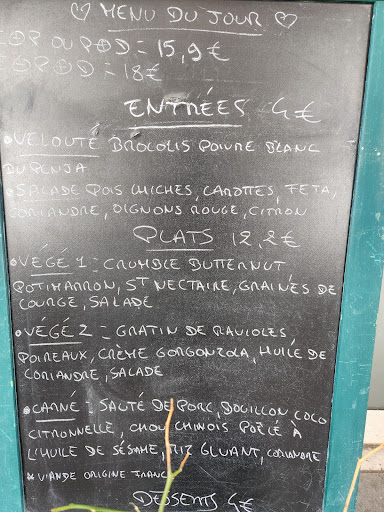 ♡ MENU DU JOUR ♡
EOP OU POD = 15,9€
EOPOD = 18€
ENTRÉES 4€
• VELOUTÉ BROCOLIS POIVRE BLANC
DU PENJA
• SALADE POIS CHICHES, CAROTTES, FETA,
CORIANDRE, OIGNONS ROUGE, CITRON
PLATS 12,2€
• VÉGÉ 1 = CRUMBLE BUTTERNUT
POTIMARRON, ST NECTAIRE, GRAINES DE
COURGE, SALADE
• VÉGÉ 2 = GRATIN DE RAVIOLES,
POIREAUX, CRÈME GORGONZOLA, HUILE DE
CORIANDRE, SALADE
• CARNÉ = SAUTÉ DE PORC, BOUILLON COCO
CITRONNELLE, CHOU CHINOIS POÊLÉ À
L'HUILE DE SÉSAME, RIZ GLUANT, CORIANDRE
* VIANDE ORIGINE FRANC
DESSERTS 4€